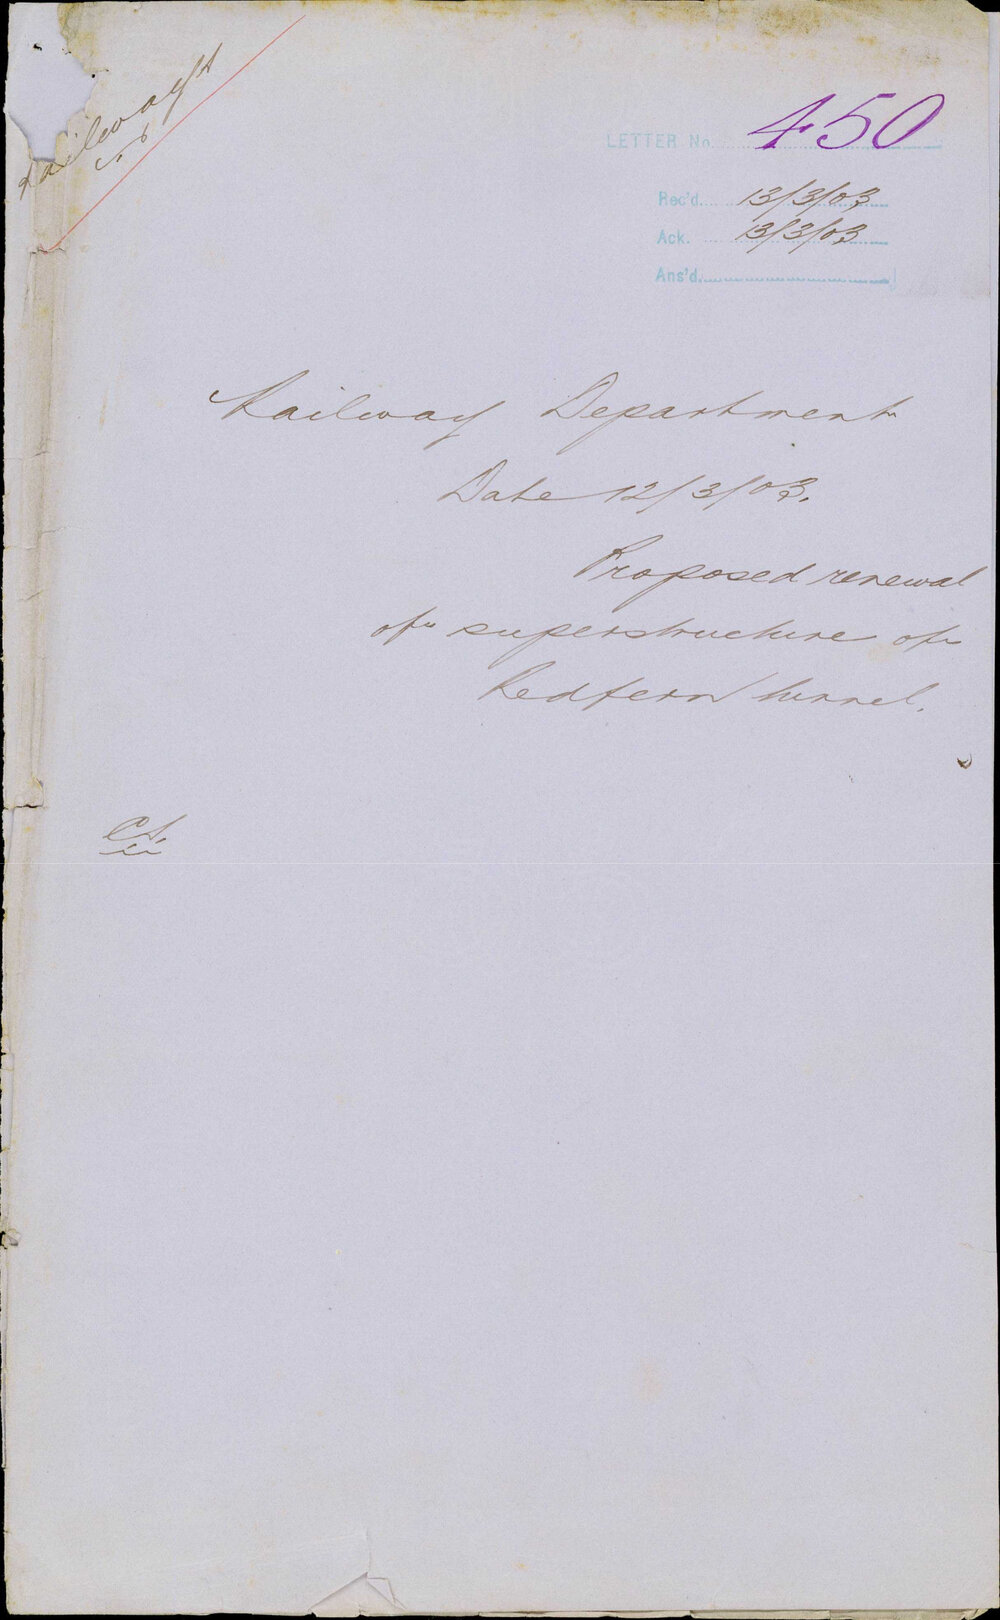 Railways
LETTER No. 450
Rec'd. 13/3/03
Ack. 13/3/03
Ans'd.
Railway Department
Date 12/3/03.
Proposed renewal
of superstructure of
Redfern tunnel.